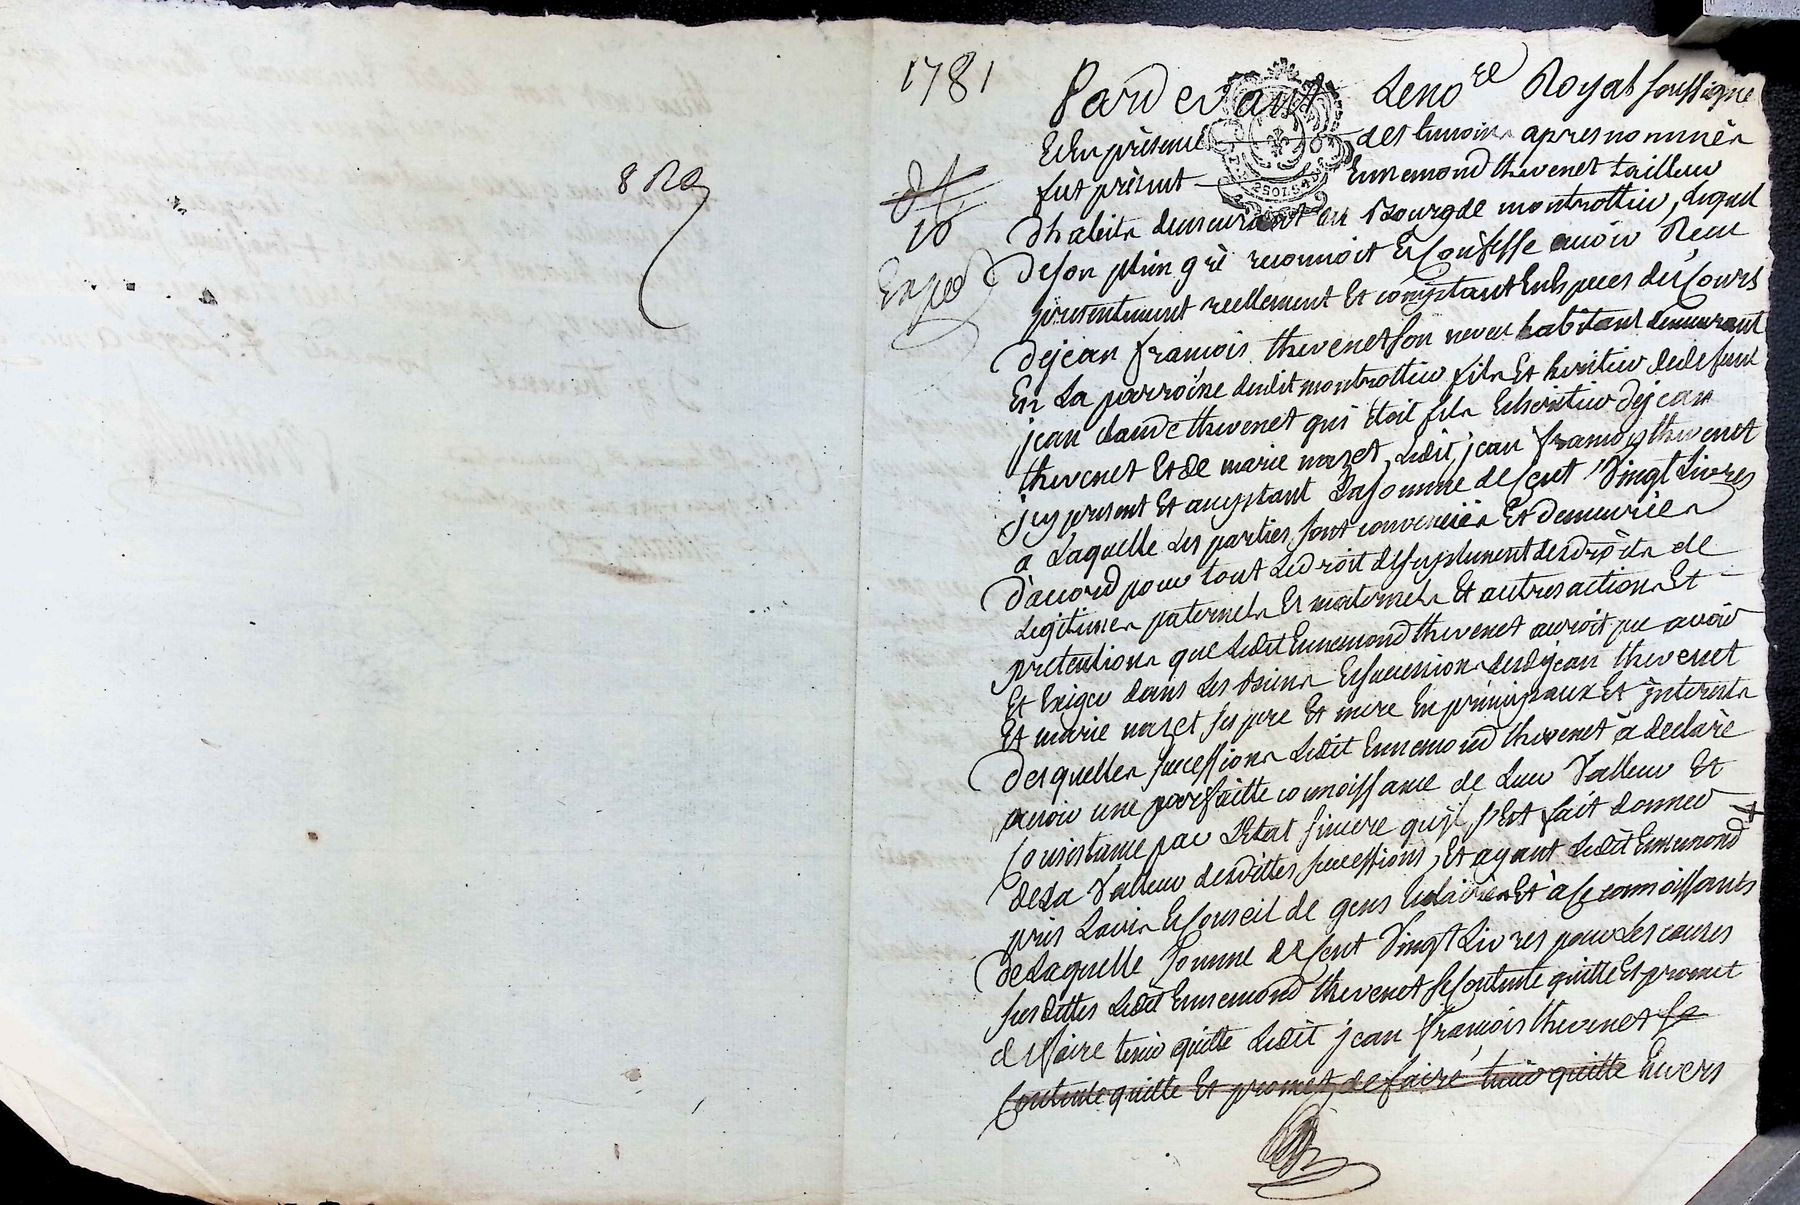 1781
8 Rg
Exped
Pardevant Le no.re Royal soussigné
Et En présence des temoins apres nommés
fut présent Ennemond thevenet tailleur
dhabits demeurant au Bourg de montrottier, Lequel
de son plein gré reconnoit Et Confesse avoir Recu
presentement reellement Et comptant En Especes du Cours
de jean francois thevenet son neveu habitant demeurant
En La parroisse dudit montrottier fils Et heritier de defunt
jean claude thevenet qui étoit fils Et heritier de jean
thevenet Et de marie nazet, Ledit jean francois thevenet
jcy present Et acceptant La somme de Cent Vingt Livres
a Laquelle Les parties sont convenües Et demeurées
d'accord pour tout Le droit de suplement des droits de
Legitimes paternels Et maternels Et autres actions Et
pretentions que Ledit Ennemond thevenet auroit pu avoir
Et Exiger dans Les biens Et successions desd jean thevenet
Et marie nazet ses pere Et mere En principaux Et jnterests
desquelles successions Ledit Ennemond thevenet à declaré
avoir une parfaitte connoissance de Leur Valleur Et
Consistance par L'Etat sincere qu'jl s'Est fait donner
de La Valleur desdittes successions, Et ayant Ledit Ennemond
pris L'avis Et Conseil de gens Eclairés Et à ce connoissants
De Laquelle Somme de Cent Vingt Livres pour Les causes
susdittes Ledit Ennemond thevenet se Contente quitte Et promet
de faire tenir quitte Ledit jean francois thevenet se
Contente quitte Et promet de faire tenir quitte Envers